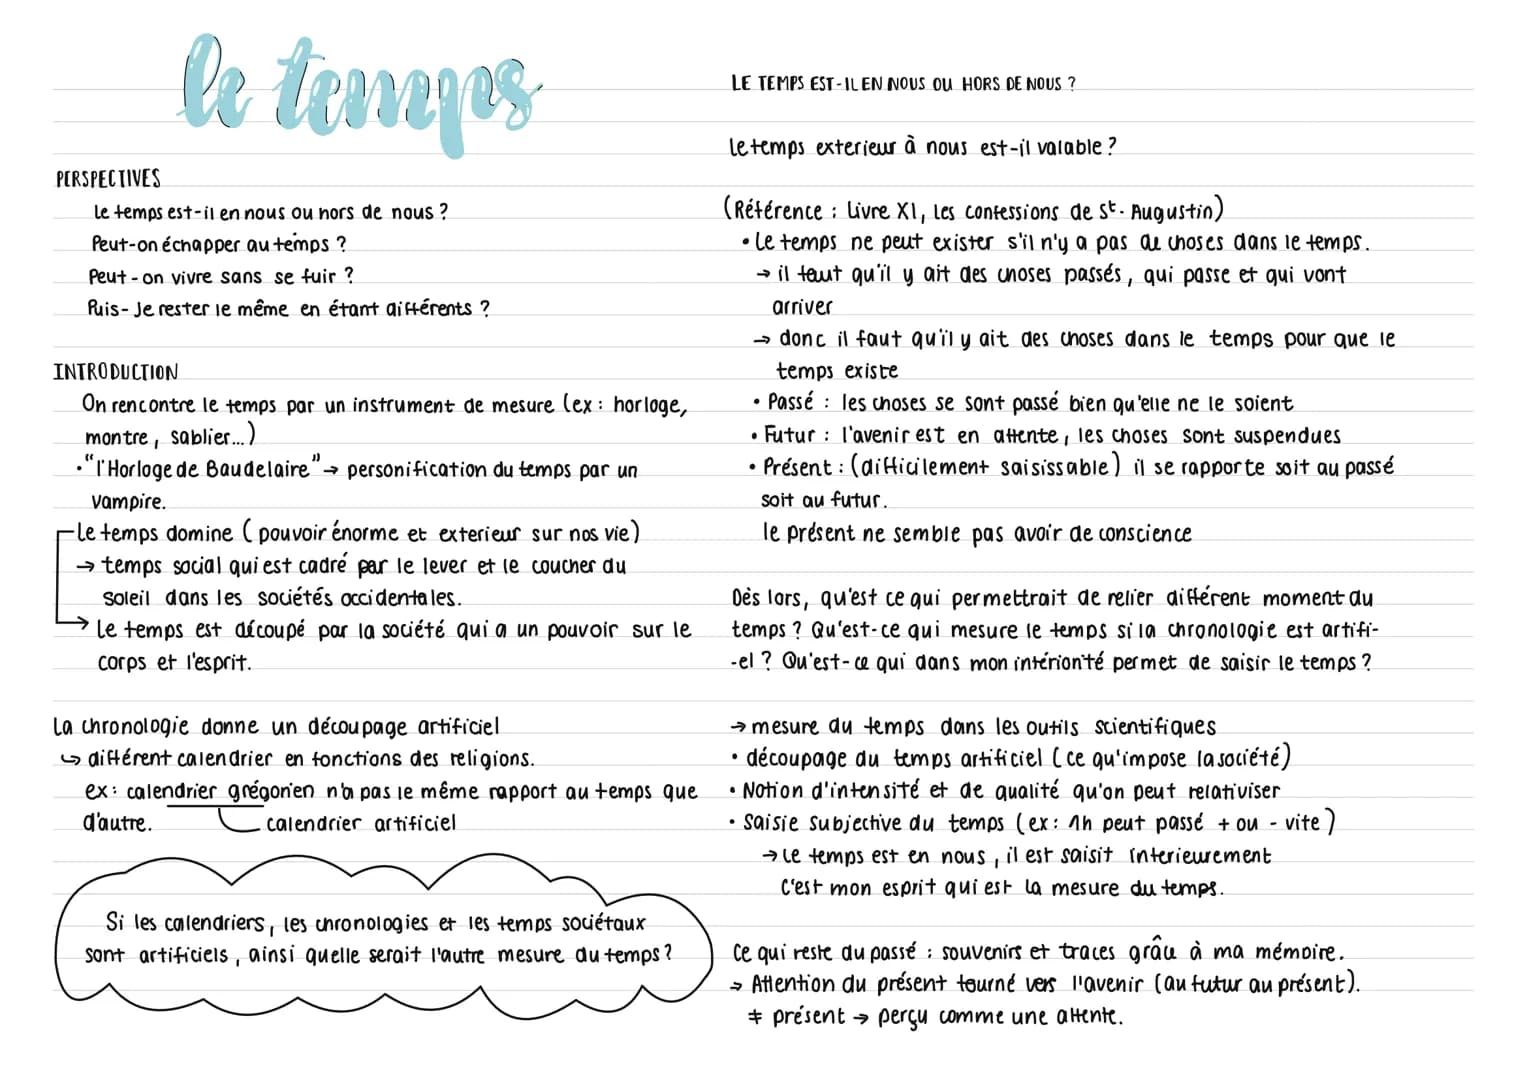 le temps
PERSPECTIVES
Le temps est-il en nous ou hors de nous ?
Peut-on échapper au temps ?
Peut-on vivre sans se fuir ?
Puis-Je rester le même en étant différents ?
INTRODUCTION
On rencontre le temps par un instrument de mesure (ex : horloge,
montre, sablier...)
• "l'Horloge de Baudelaire" → personification du temps par un
vampire.
Le temps domine (pouvoir énorme et exterieur sur nos vie)
→ temps social qui est cadré par le lever et le coucher du
soleil dans les sociétés occidentales.
→ Le temps est découpé par la société qui a un pouvoir sur le
corps et l'esprit.
La chronologie donne un découpage artificiel
↪ différent calendrier en fonctions des religions.
ex : calendrier grégorien n'a pas le même rapport au temps que
d'autre.
calendrier artificiel
Si les calendriers, les chronologies et les temps sociétaux
sont artificiels, ainsi quelle serait l'autre mesure du temps ?
LE TEMPS EST-IL EN NOUS OU HORS DE NOUS ?
Le temps exterieur à nous est-il valable ?
(Référence : Livre XI, Les confessions de St. Augustin)
• Le temps ne peut exister s'il n'y a pas de choses dans le temps.
→ il faut qu'il y ait des choses passés, qui passe et qui vont
arriver
→ donc il faut qu'il y ait des choses dans le temps pour que le
temps existe
• Passé : les choses se sont passé bien qu'elle ne le soient
• Futur : l'avenir est en attente, les choses sont suspendues
• Présent : (difficilement saisissable) il se rapporte soit au passé
soit au futur.
le présent ne semble pas avoir de conscience
Dès lors, qu'est ce qui permettrait de relier différent moment du
temps ? Qu'est-ce qui mesure le temps si la chronologie est artifi-
-el ? Qu'est-ce qui dans mon intériorité permet de saisir le temps ?
→ mesure du temps dans les outils scientifiques
• découpage du temps artificiel (ce qu'impose la société)
• Notion d'intensité et de qualité qu'on peut relativiser
• Saisie subjective du temps (ex : 1h peut passé + ou - vite)
→ Le temps est en nous, il est saisit interieurement
C'est mon esprit qui est la mesure du temps.
Ce qui reste du passé : souvenirs et traces grâce à ma mémoire.
→ Attention du présent tourné vers l'avenir (au futur au présent).
≠ présent → perçu comme une attente.